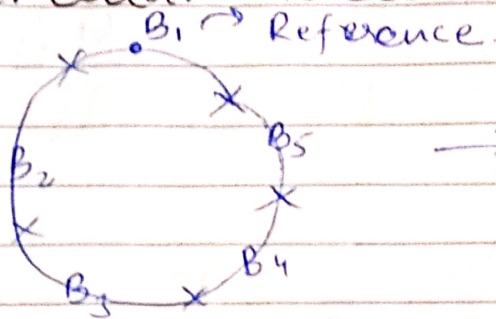 B1 → Reference.
B5
B2
B4
B3